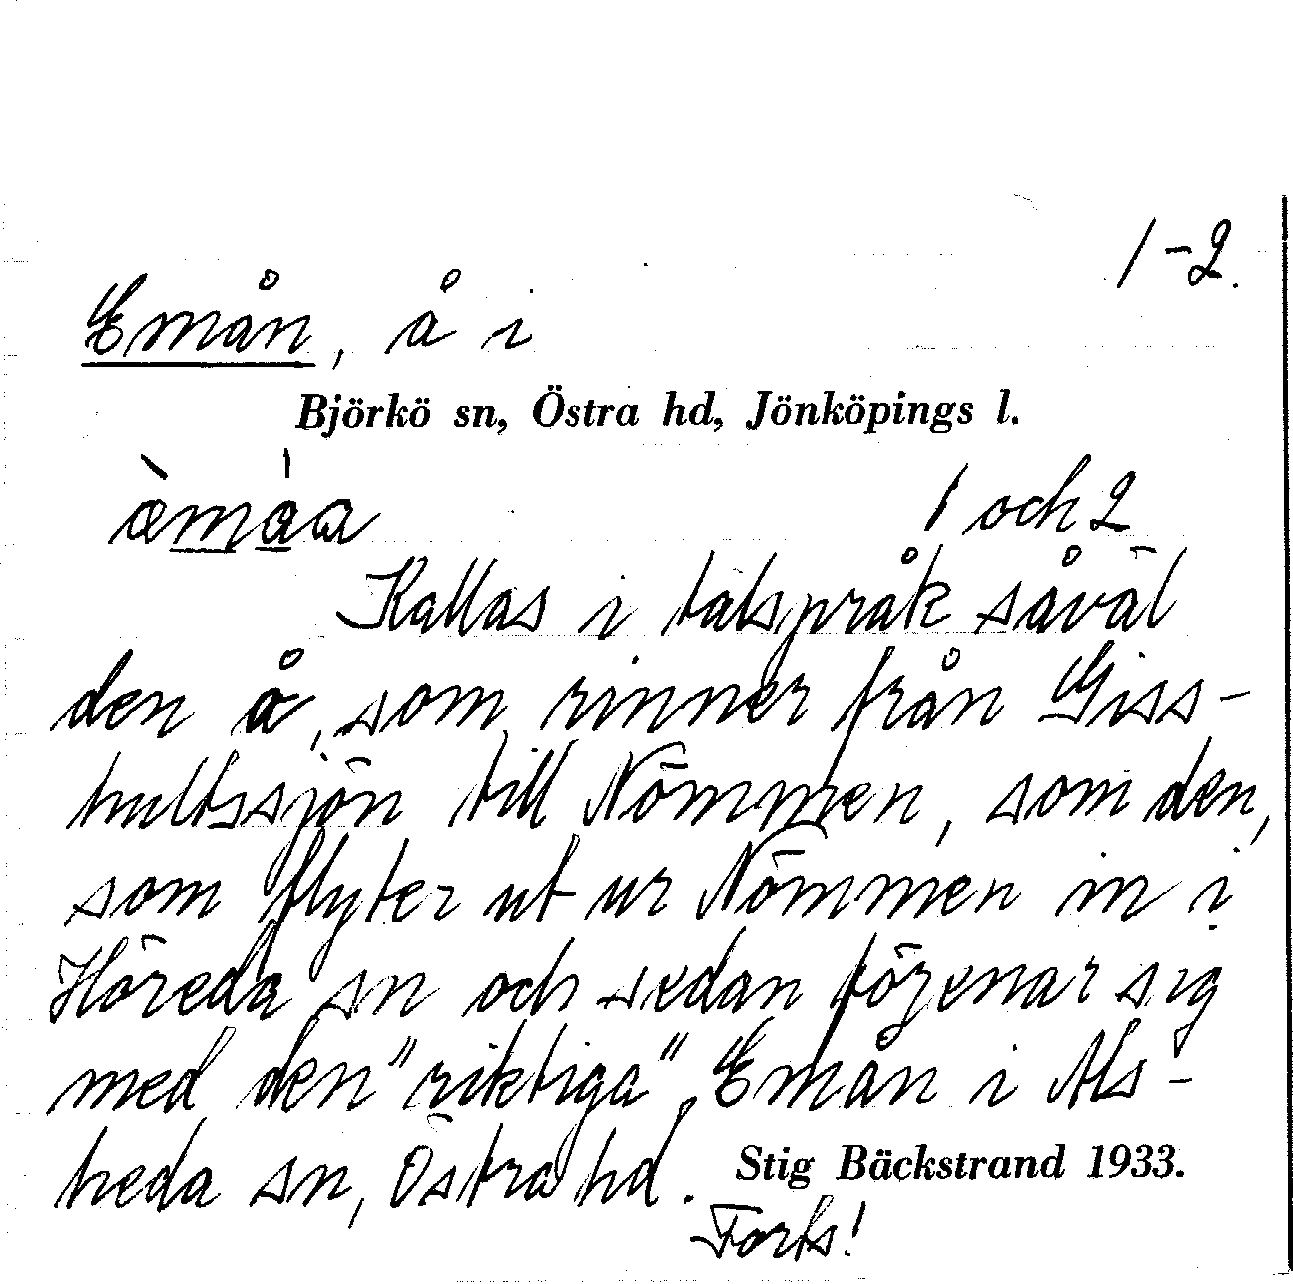 1-2.
Emån, å i
Björkö sn, Östra hd, Jönköpings l.
æ̀máa 1 och 2
Kallas i talspråk såväl
den å, som rinner från Giss-
hultssjön till Nömmen, som den,
som flyter ut ur Nömmen in i
Höreda sn och sedan förenar sig
med den "riktiga" Emån i Als-
heda sn, Östra hd.
Stig Bäckstrand 1933.
Forts!